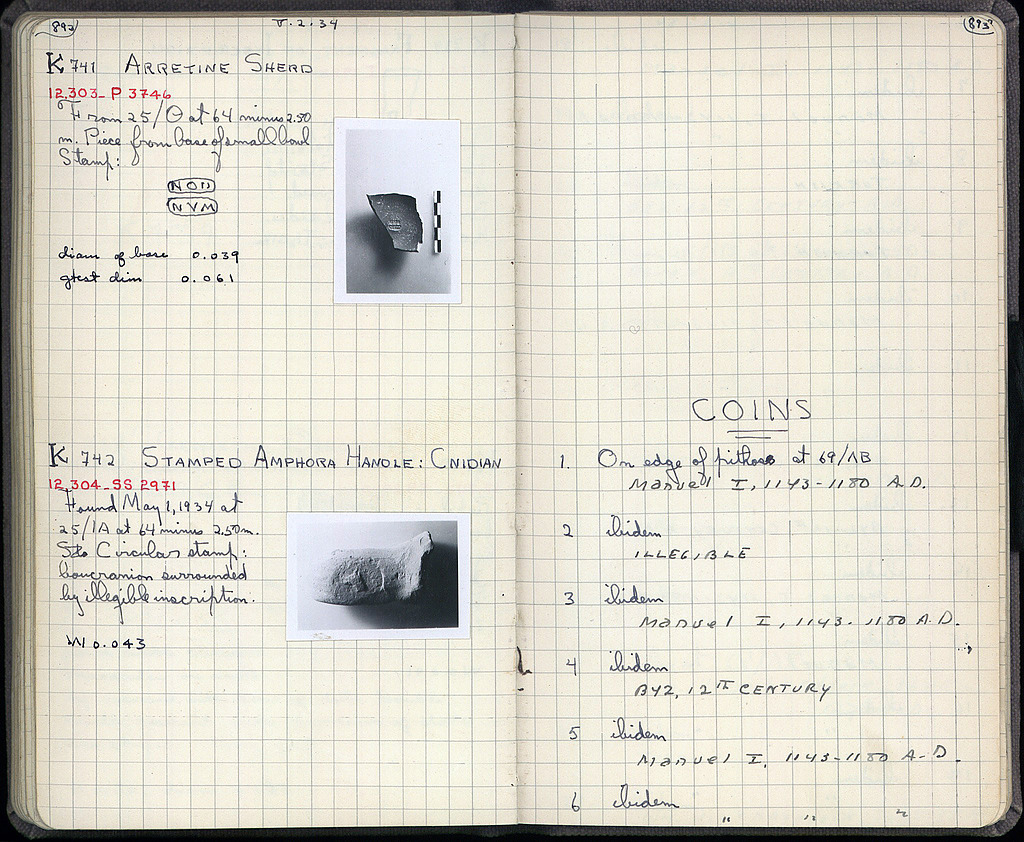 892
V.2.34
K 741 ARRETINE SHERD
12,303- P 3746
From 25/Θ at 64 minus 2.50
m. Piece from base of small bowl
Stamp:
NOU
NVM
diam of base 0.039
gtest dim 0.061
K 742 STAMPED AMPHORA HANDLE: CNIDIAN
12,304-SS 2971
Found May 1, 1934 at
25/ΙΑ at 64 minus 2.50m.
Circular stamp:
boucranion surrounded
by illegible inscription.
W 0.043
893
COINS
1. On edge of pithos at 69/ΛΒ
MANUEL I, 1143-1180 A.D.
2 ibidem
ILLEGIBLE
3 ibidem
MANUEL I, 1143-1180 A.D.
4 ibidem
BYZ, 12TH CENTURY
5 ibidem
MANUEL I, 1143-1180 A.D.
6 ibidem
" " "